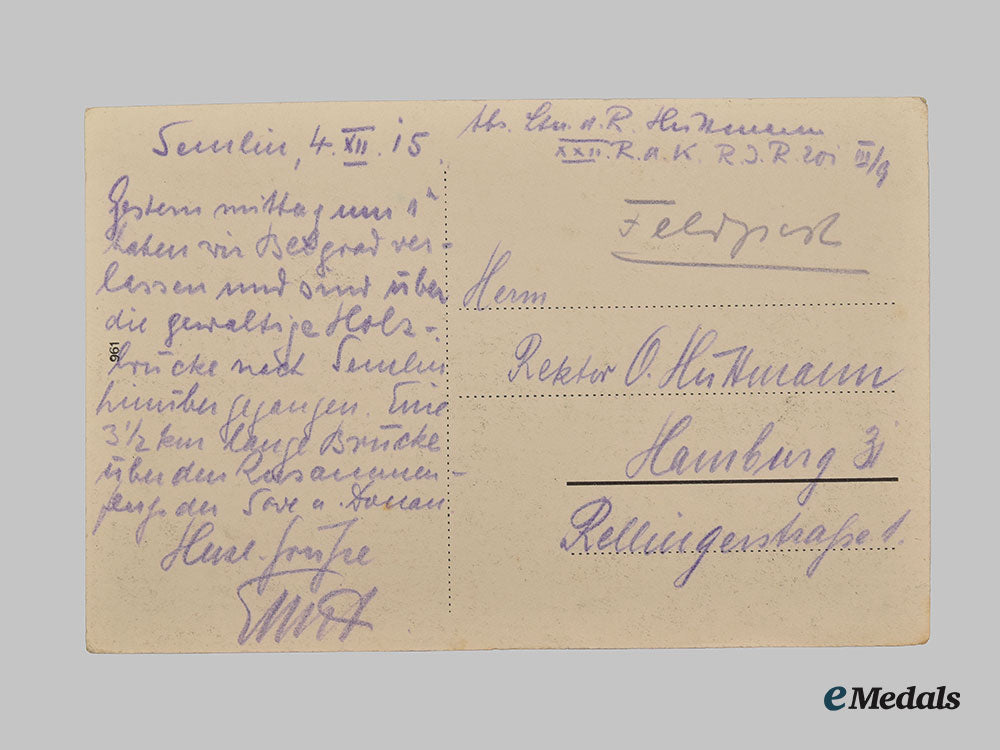 Semlin, 4. XII. 15.
Gestern mittag um 1ʰ
haben wir Belgrad ver-
lassen und sind über
die gewaltige Holz-
brücke nach Semlin
hinübergegangen. Eine
3½ km lange Brücke
über den Zusammen-
der Save u. Donau
Herzl. Grüße
Abs. Ltn. d. R. Hüttmann
XXII. R. A. K. R. I. R. 201 III/9
Feldpost
Herrn
Rektor O. Hüttmann
Hamburg 31
Rellingerstraße 1.
961
eMedals